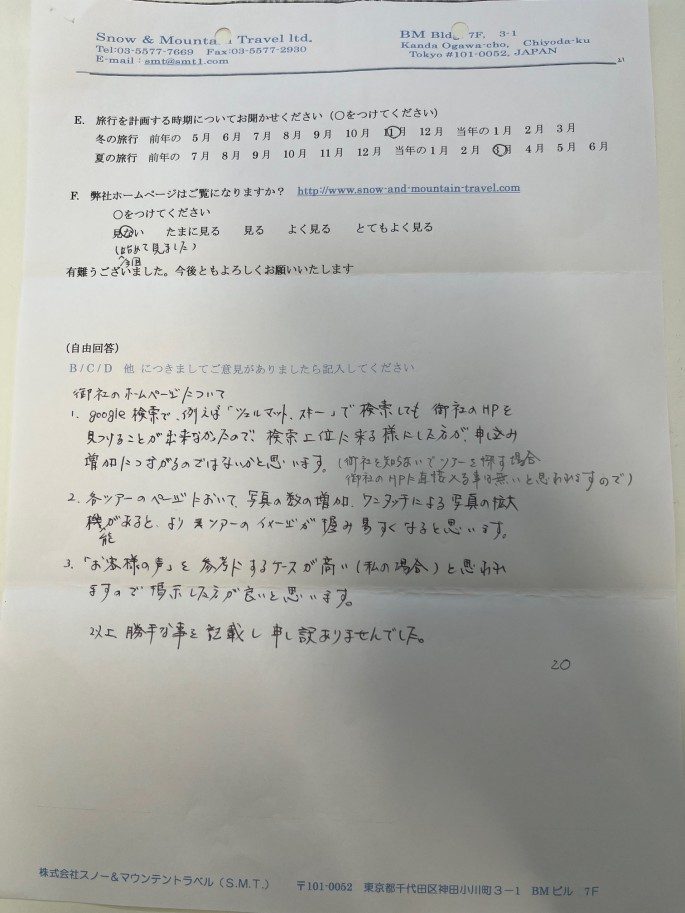 Snow & Mountain Travel ltd.
Tel:03-5577-7669 Fax:03-5577-2930
E-mail : smt@smt1.com
BM Bldg 7F, 3-1
Kanda Ogawa-cho, Chiyoda-ku
Tokyo #101-0052, JAPAN
21
E. 旅行を計画する時期についてお聞かせください（○をつけてください）
冬の旅行 前年の 5月 6月 7月 8月 9月 10月 11月 12月 当年の1月 2月 3月
夏の旅行 前年の 7月 8月 9月 10月 11月 12月 当年の1月 2月 3月 4月 5月 6月
F. 弊社ホームページはご覧になりますか？ http://www.snow-and-mountain-travel.com
○をつけてください
見ない たまに見る 見る よく見る とてもよく見る
(始めて見ました)
今回
有難うございました。今後ともよろしくお願いいたします
(自由回答)
B/C/D 他 につきましてご意見がありましたら記入してください
御社のホームページについて
1. google検索で、例えば「ツェルマット、スキー」で検索しても 御社のHPを
見つけることが出来なかったので、検索上位に来る様にした方が、申込み
増加につながるのではないかと思います。(御社を知らないでツアーを探す場合
御社のHPに直接入る事は無いと思われますので)
2. 各ツアーのページにおいて、写真の数の増加、ワンタッチによる写真の拡大
機があると、より ツアーのイメージが掴み易すくなると思います。
能
3. 「お客様の声」を参考にするケースが高い(私の場合)と思われ
ますので掲示した方が良いと思います。
以上 勝手な事を記載し申し訳ありませんでした。
20
株式会社スノー＆マウンテントラベル（S.M.T.） 〒101-0052 東京都千代田区神田小川町3－1 BMビル 7F